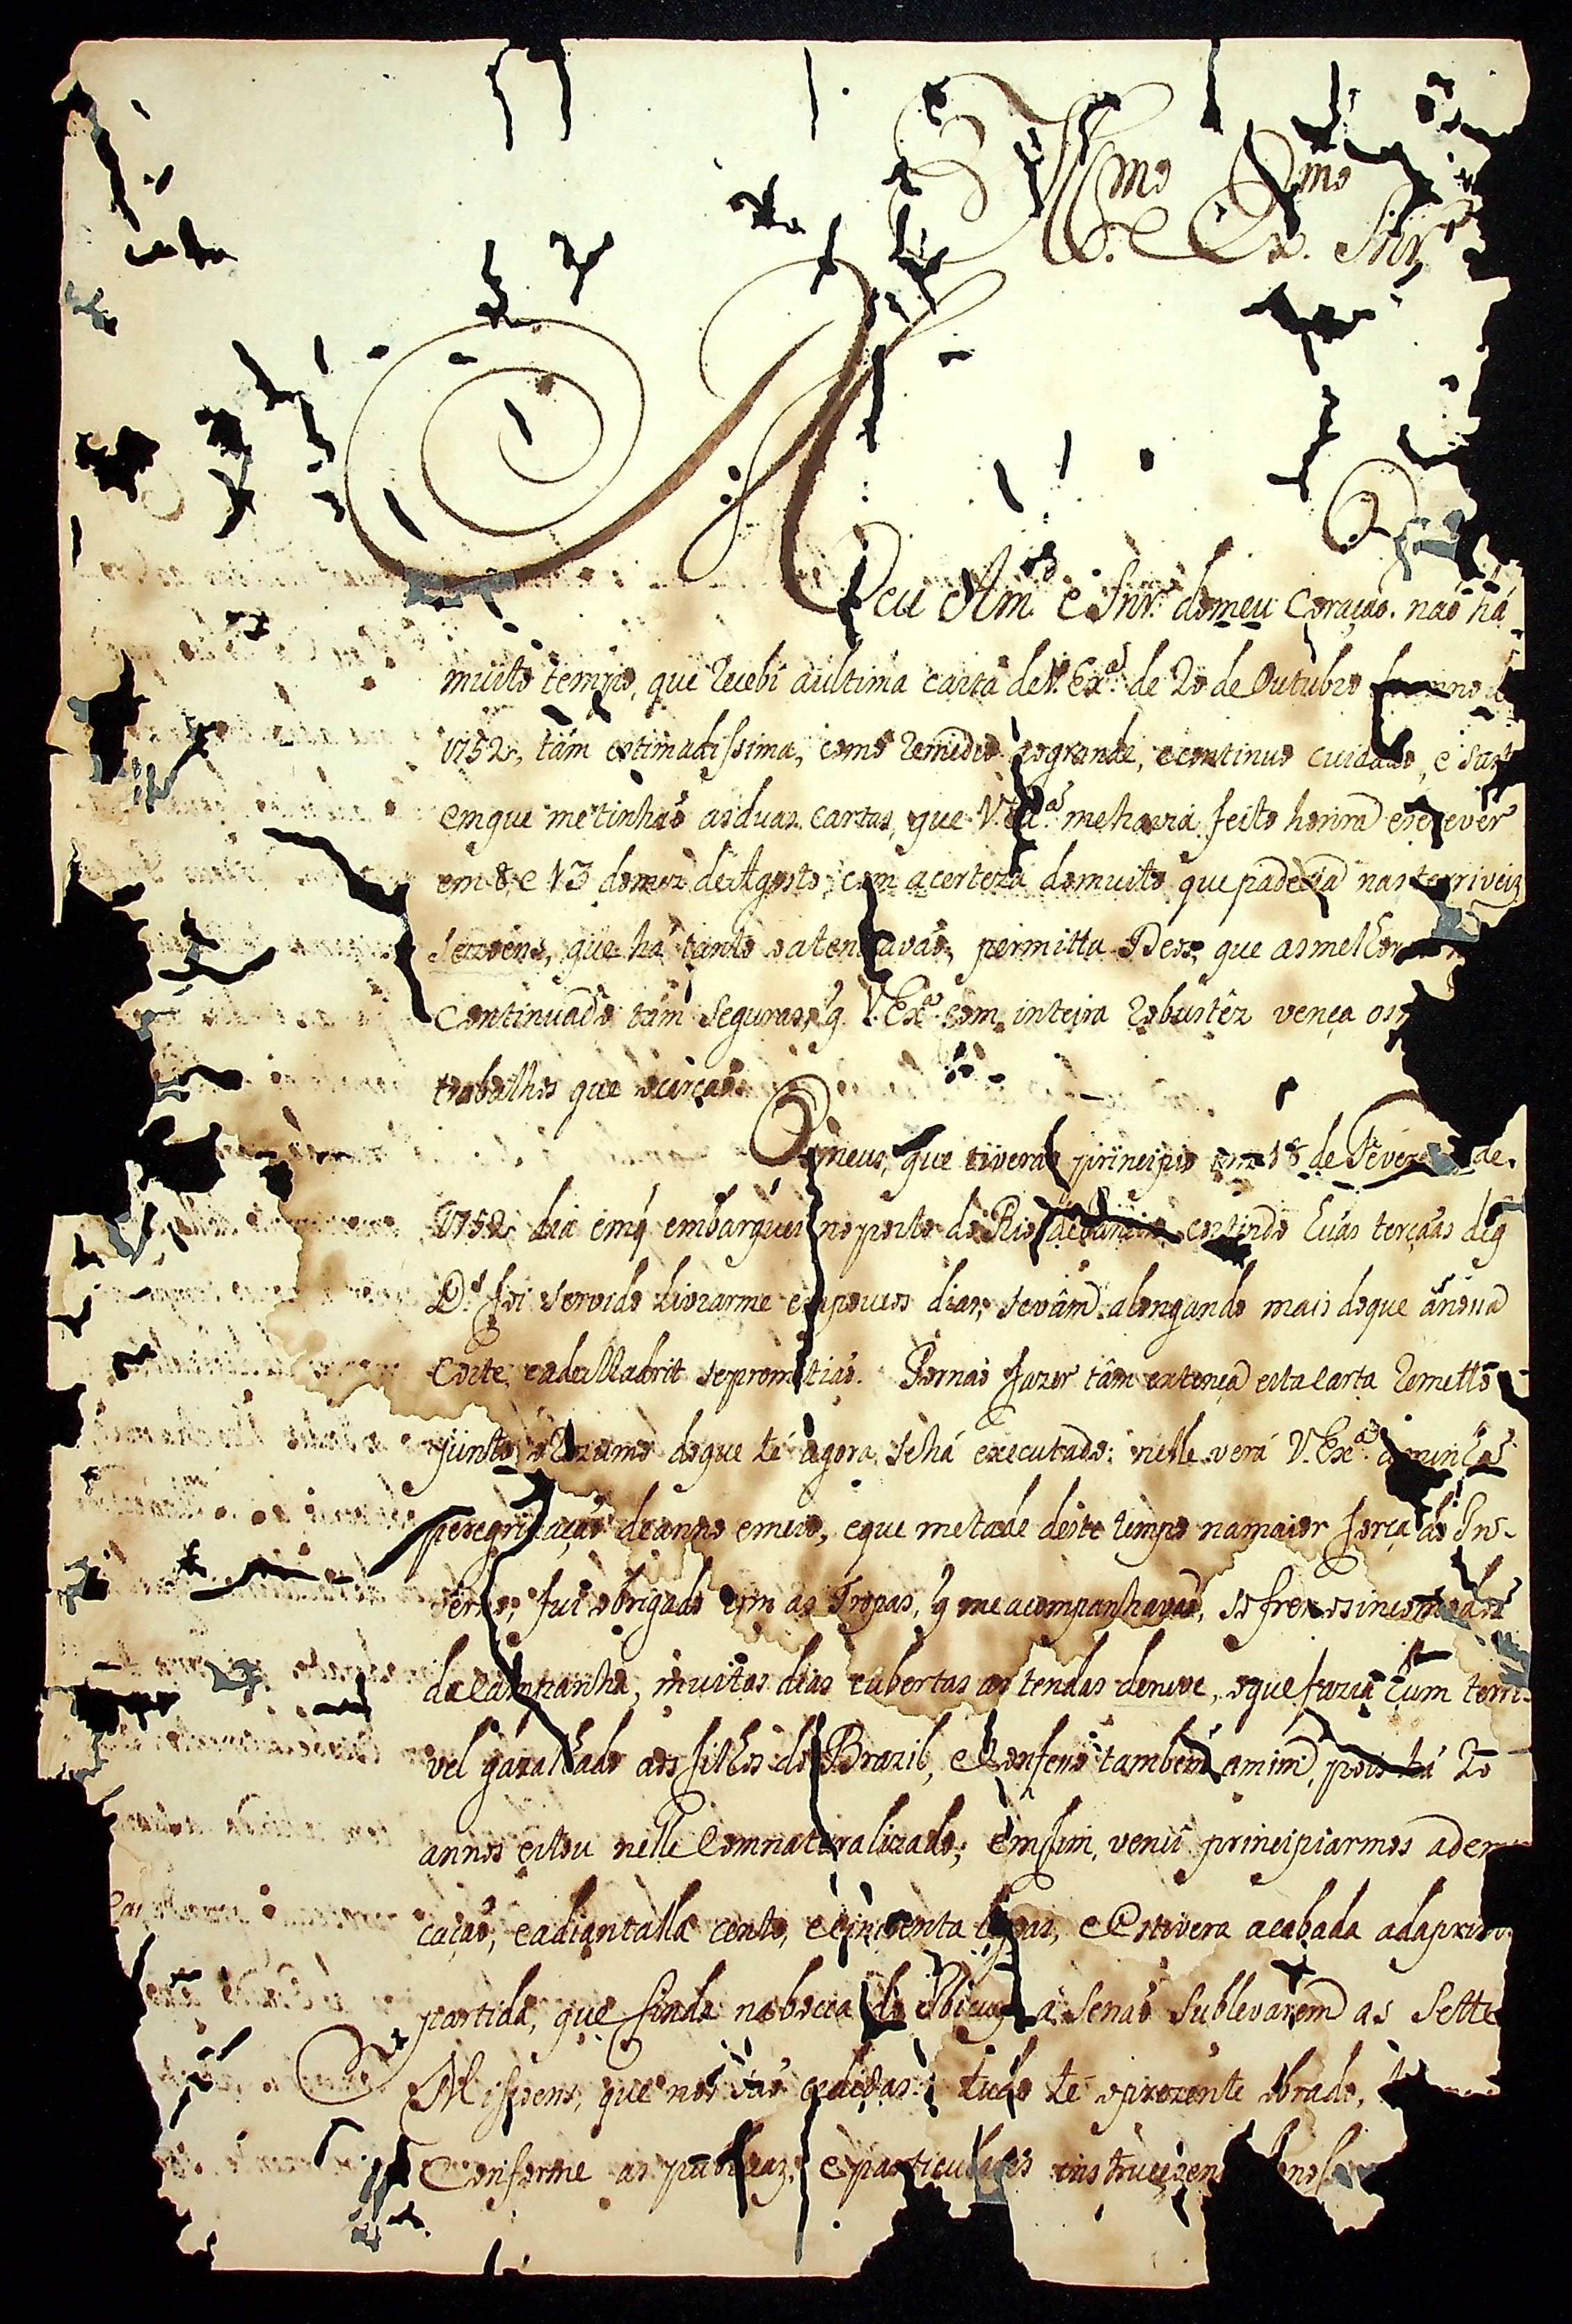 Ill.mo e Ex.mo Snr.
Meu Am.o e Snr. domeu Coração. naõ há
muito tempo, que recebi aultima carta deV. Ex.a de 20 de Outubro
1752, tám estimadissima, como remedio aogrande, econtinuo cuidado, e
emque metinhaõ asduas cartas, que V. Ex.a mehavia feito honra escrever
em 8, e 13 domez deAgosto, com acerteza domuito que padecia nas terriveiz
que há tanto oatenuavaõ; permitta Deos, que asmelhor
Continuado tám seguras, q V. Ex.a com inteira robustêz vença os
trabalhos que ocercaõ.
Osmeus, que tiveraõ principio em 18 de Fever de
1752 dia emq embarquei noporto do Rio deJaneiro, contindo tuas terçaãs deq
D.s foi servido livrarme empoucos dias, sevám alongando mais doque ánoua
Corte, eadeMadrit seprometiaõ. Pornaõ fazer tám extença esta carta remetto
junto oRezumo doque té agora sehá executado: nelle verá V. Ex.a aminha
peregrinaçaõ deanno emeio, eque metade deste tempo namaior força do Inv-
erno, fui obrigado com as Tropas, q meacompanhavaõ, sofrer osincomodos
decampanha, muitos dias cubertas as tendas deneve, oque fazia hum terri-
vel gazalhado aos filhos do Brazil, eConfeço tambem amim, pois há 20
annos estou nelle Comnaturalizado; emfim, venci principiarmos adem
caçaõ, eadiantalla cento, ecincoenta legoas, eEstivera acabada adaprim
partida, que finda naboca do Ibicuy á Senaõ Sublevarem as Sette
Missoens, que nos saõ cedidas: tudo té oprezente obrado,
Conforme as publicaz, eparticulares instrucçoens